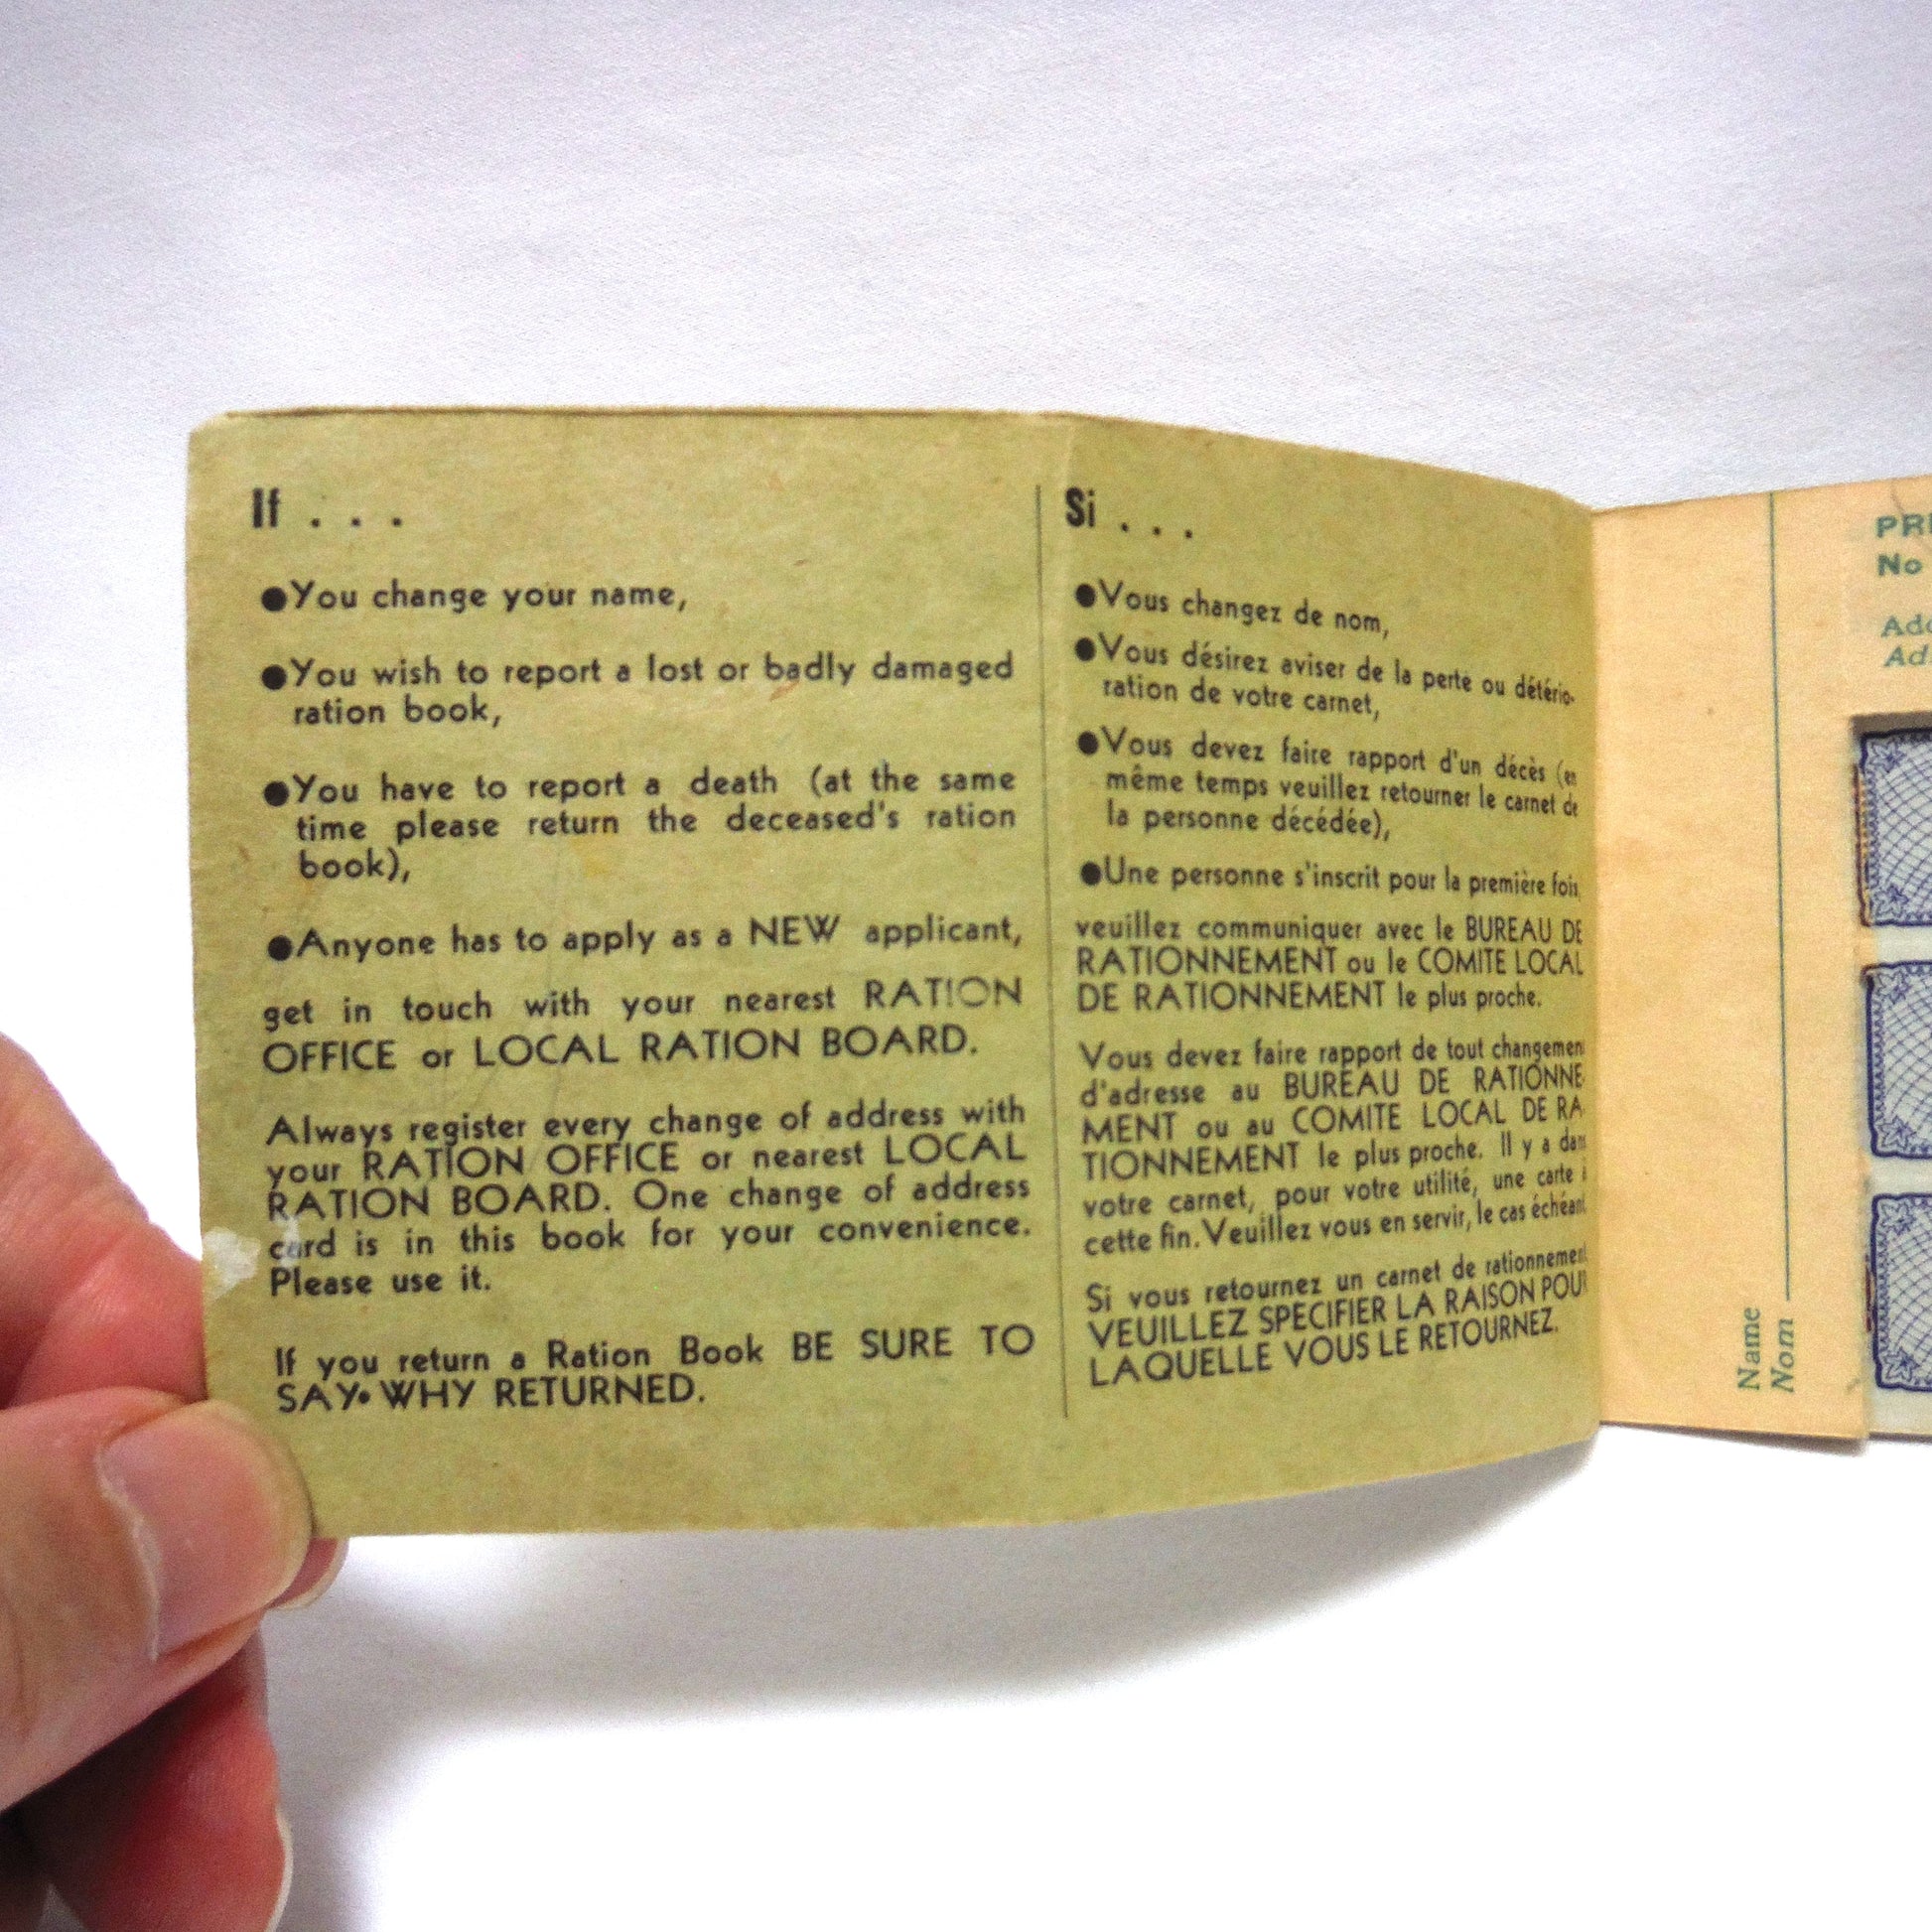 If . . .
●You change your name,
●You wish to report a lost or badly damaged
ration book,
●You have to report a death (at the same
time please return the deceased's ration
book),
●Anyone has to apply as a NEW applicant,
get in touch with your nearest RATION
OFFICE or LOCAL RATION BOARD.
Always register every change of address with
your RATION OFFICE or nearest LOCAL
RATION BOARD. One change of address
card is in this book for your convenience.
Please use it.
If you return a Ration Book BE SURE TO
SAY•WHY RETURNED.
Si . . .
●Vous changez de nom,
●Vous désirez aviser de la perte ou détério-
ration de votre carnet,
●Vous devez faire rapport d'un décès (en
même temps veuillez retourner le carnet de
la personne décédée),
●Une personne s'inscrit pour la première fois,
veuillez communiquer avec le BUREAU DE
RATIONNEMENT ou le COMITE LOCAL
DE RATIONNEMENT le plus proche.
Vous devez faire rapport de tout changemen
d'adresse au BUREAU DE RATIONNE-
MENT ou au COMITE LOCAL DE RA-
TIONNEMENT le plus proche. Il y a dans
votre carnet, pour votre utilité, une carte
cette fin. Veuillez vous en servir, le cas échéant.
Si vous retournez un carnet de rationnement
VEUILLEZ SPECIFIER LA RAISON POUR
LAQUELLE VOUS LE RETOURNEZ.
Name
Nom
No